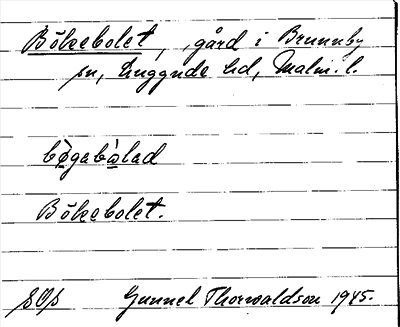 Bökebolet, gård i Brunnby
sn, Luggude hd, Malm. l.
bø̀gabòlad
Bökebolet.
SOs Gunnel Thorwaldson 1945.